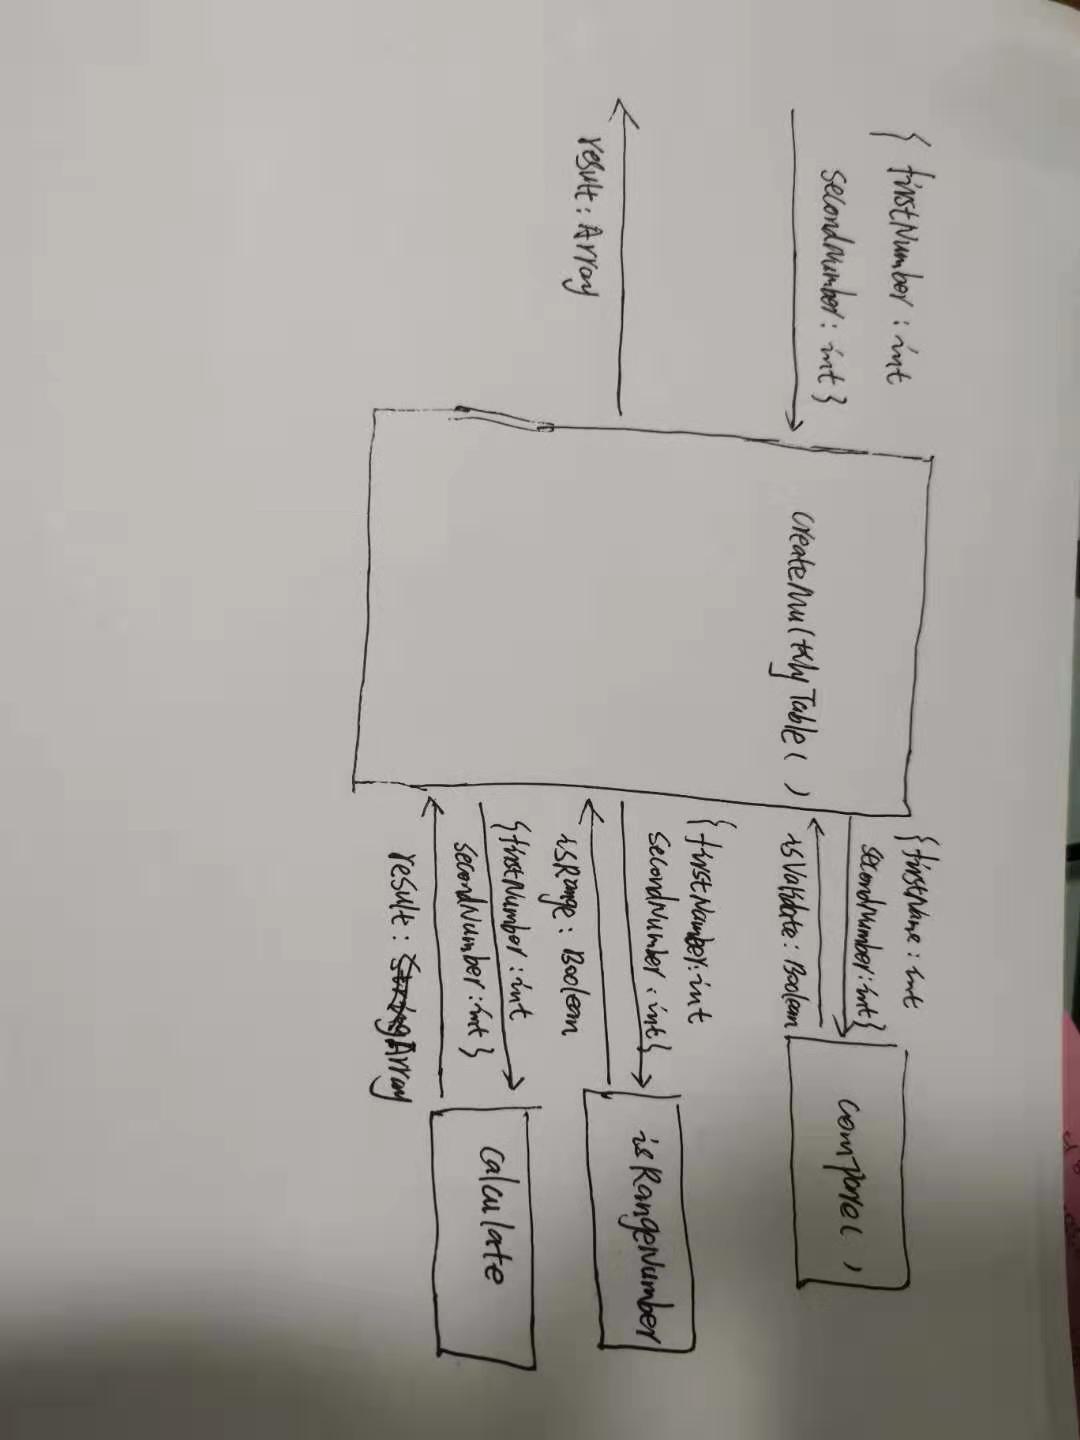 { firstNumber : int
secondNumber : int }
result : Array
createMultiplyTable ( )
{ firstName : int
secondNumber : int }
isValidate : Boolean
compare ( )
{ firstNumber : int
secondNumber : int }
isRange : Boolean
isRangeNumber
{ firstNumber : int
secondNumber : int }
result : String Array
calculate